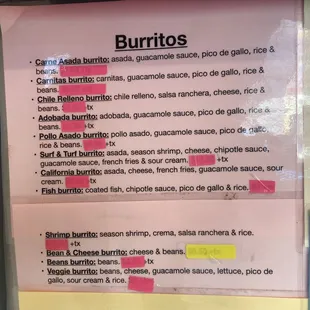 Burritos
• Carne Asada burrito: asada, guacamole sauce, pico de gallo, rice &
beans.
• Carnitas burrito: carnitas, guacamole sauce, pico de gallo, rice &
beans.
• Chile Relleno burrito: chile relleno, salsa ranchera, cheese, rice &
beans. +tx
• Adobada burrito: adobada, guacamole sauce, pico de gallo, rice &
beans. +tx
• Pollo Asado burrito: pollo asado, guacamole sauce, pico de gallo,
rice & beans. +tx
• Surf & Turf burrito: asada, season shrimp, cheese, chipotle sauce,
guacamole sauce, french fries & sour cream. +tx
• California burrito: asada, cheese, french fries, guacamole sauce, sour
cream. +tx
• Fish burrito: coated fish, chipotle sauce, pico de gallo & rice.
• Shrimp burrito: season shrimp, crema, salsa ranchera & rice.
+tx
• Bean & Cheese burrito: cheese & beans.
• Beans burrito: beans. +tx
• Veggie burrito: beans, cheese, guacamole sauce, lettuce, pico de
gallo, sour cream & rice.